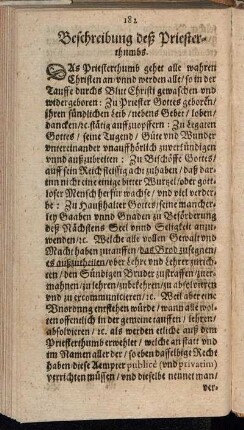 182
Beschreibung deß Priester-
thumbs.
DAs Priesterthumb gehet alle wahren
Christen an vnnd werden alle / so in der
Tauffe durchs Blut Christi gewaschen vnd
widergeboren : Zu Priester Gottes geboren /
ihren sündlichen Leib / nebens Gebet / loben /
dancken / ec. stätig auffzuopffern : Zu
Gottes / seine Tugend / Güte vnd Wunder
vntereinander vnauffhörlich zuverkündigen
vnnd außzubreiten : Zu Bischöffe Gottes /
auff sein Reich fleissig acht zuhaben / daß dar-
inn nicht eine einige bitter Wurzel / oder gott-
loser Mensch herfür wachse / vnd viel verder-
be : Zu Haußhalter Gottes / seine mancher-
ley Gaaben vnnd Gnaden zu Beförderung
deß Nächstens Seel vnnd Seligkeit anzu-
wenden / ec. Welche alle vollen Gewalt vnd
Macht haben zutauffen / das Brod zusegnen /
es außzutheilen / vber Lehre vnd Lehrer zurich-
ten / den Sündigen Bruder zustraffen / zuer-
mahnen / zulehren / zubekehren / zu absolvieren
vnd zu excommunicieren / ec. Weil aber eine
Vnordnung entstehen würde / wann alle wol-
ten offentlich in der gemeine tauffen / lehren /
absolvieren / ec. als werden etliche auß dem
Priesterthumb erwehlet / welche an statt vnd
im Namen aller der / so eben dasselbige Recht
haben / diese Aempter publicè (vnd privatim)
verrichten müssen / vnd dieselbe nennet man /
ver-